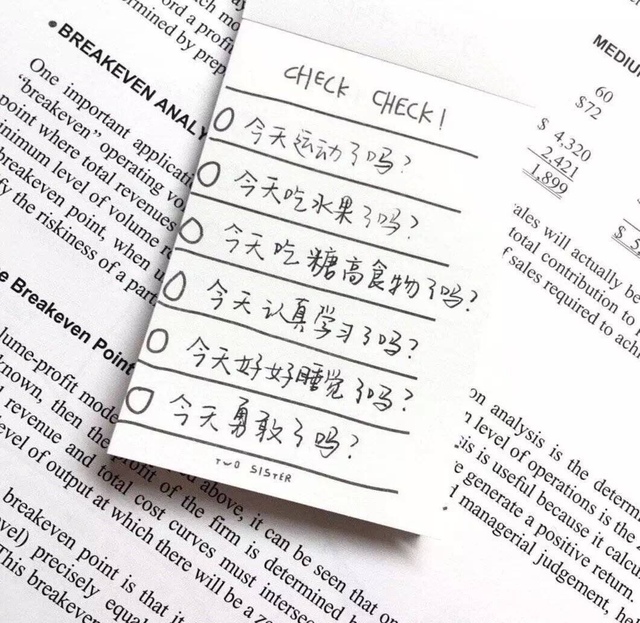 CHECK CHECK!
今天运动了吗?
今天吃水果了吗?
今天吃糖高食物了吗?
今天认真学习了吗?
今天好好睡觉了吗?
今天勇敢了吗?
TWO SISTER
• BREAKEVEN ANALY
One important applicati
“breakeven” operating vo
point where total revenues
inimum level of volume r
breakeven point, when u
fy the riskiness of a part
e Breakeven Point
lume-profit mode
above, it can be seen that or
known, then the profit of the firm is determined
revenue and total cost curves must intersec
evel of output at which there will be a
breakeven point is that it
vel) precisely equa
This breakeven
MEDIU
60
$72
$ 4,320
2,421
1,899
ales will actually be
total contribution to
f sales required to ach
on analysis is the determ
level of operations is the
is is useful because it calcu
e generate a positive return.
managerial judgement, he